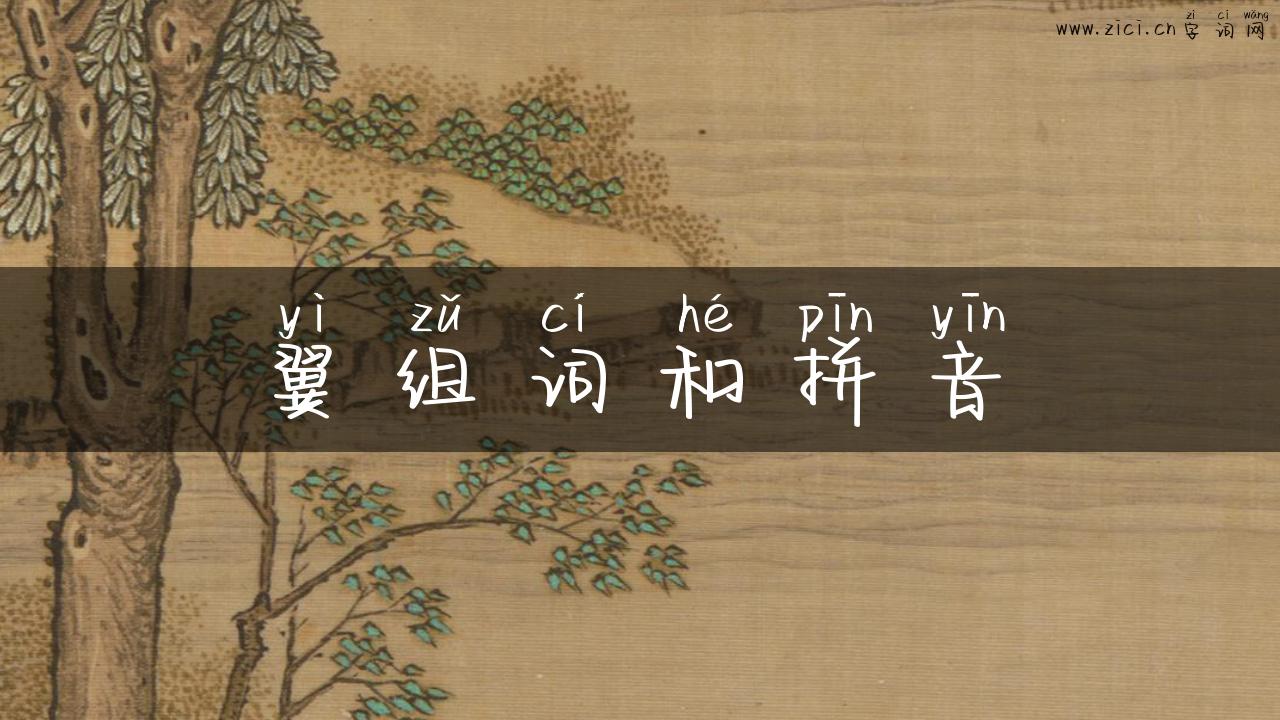 zì cí wǎng
www.zici.cn 字词网
yì zǔ cí hé pīn yīn
翼组词和拼音